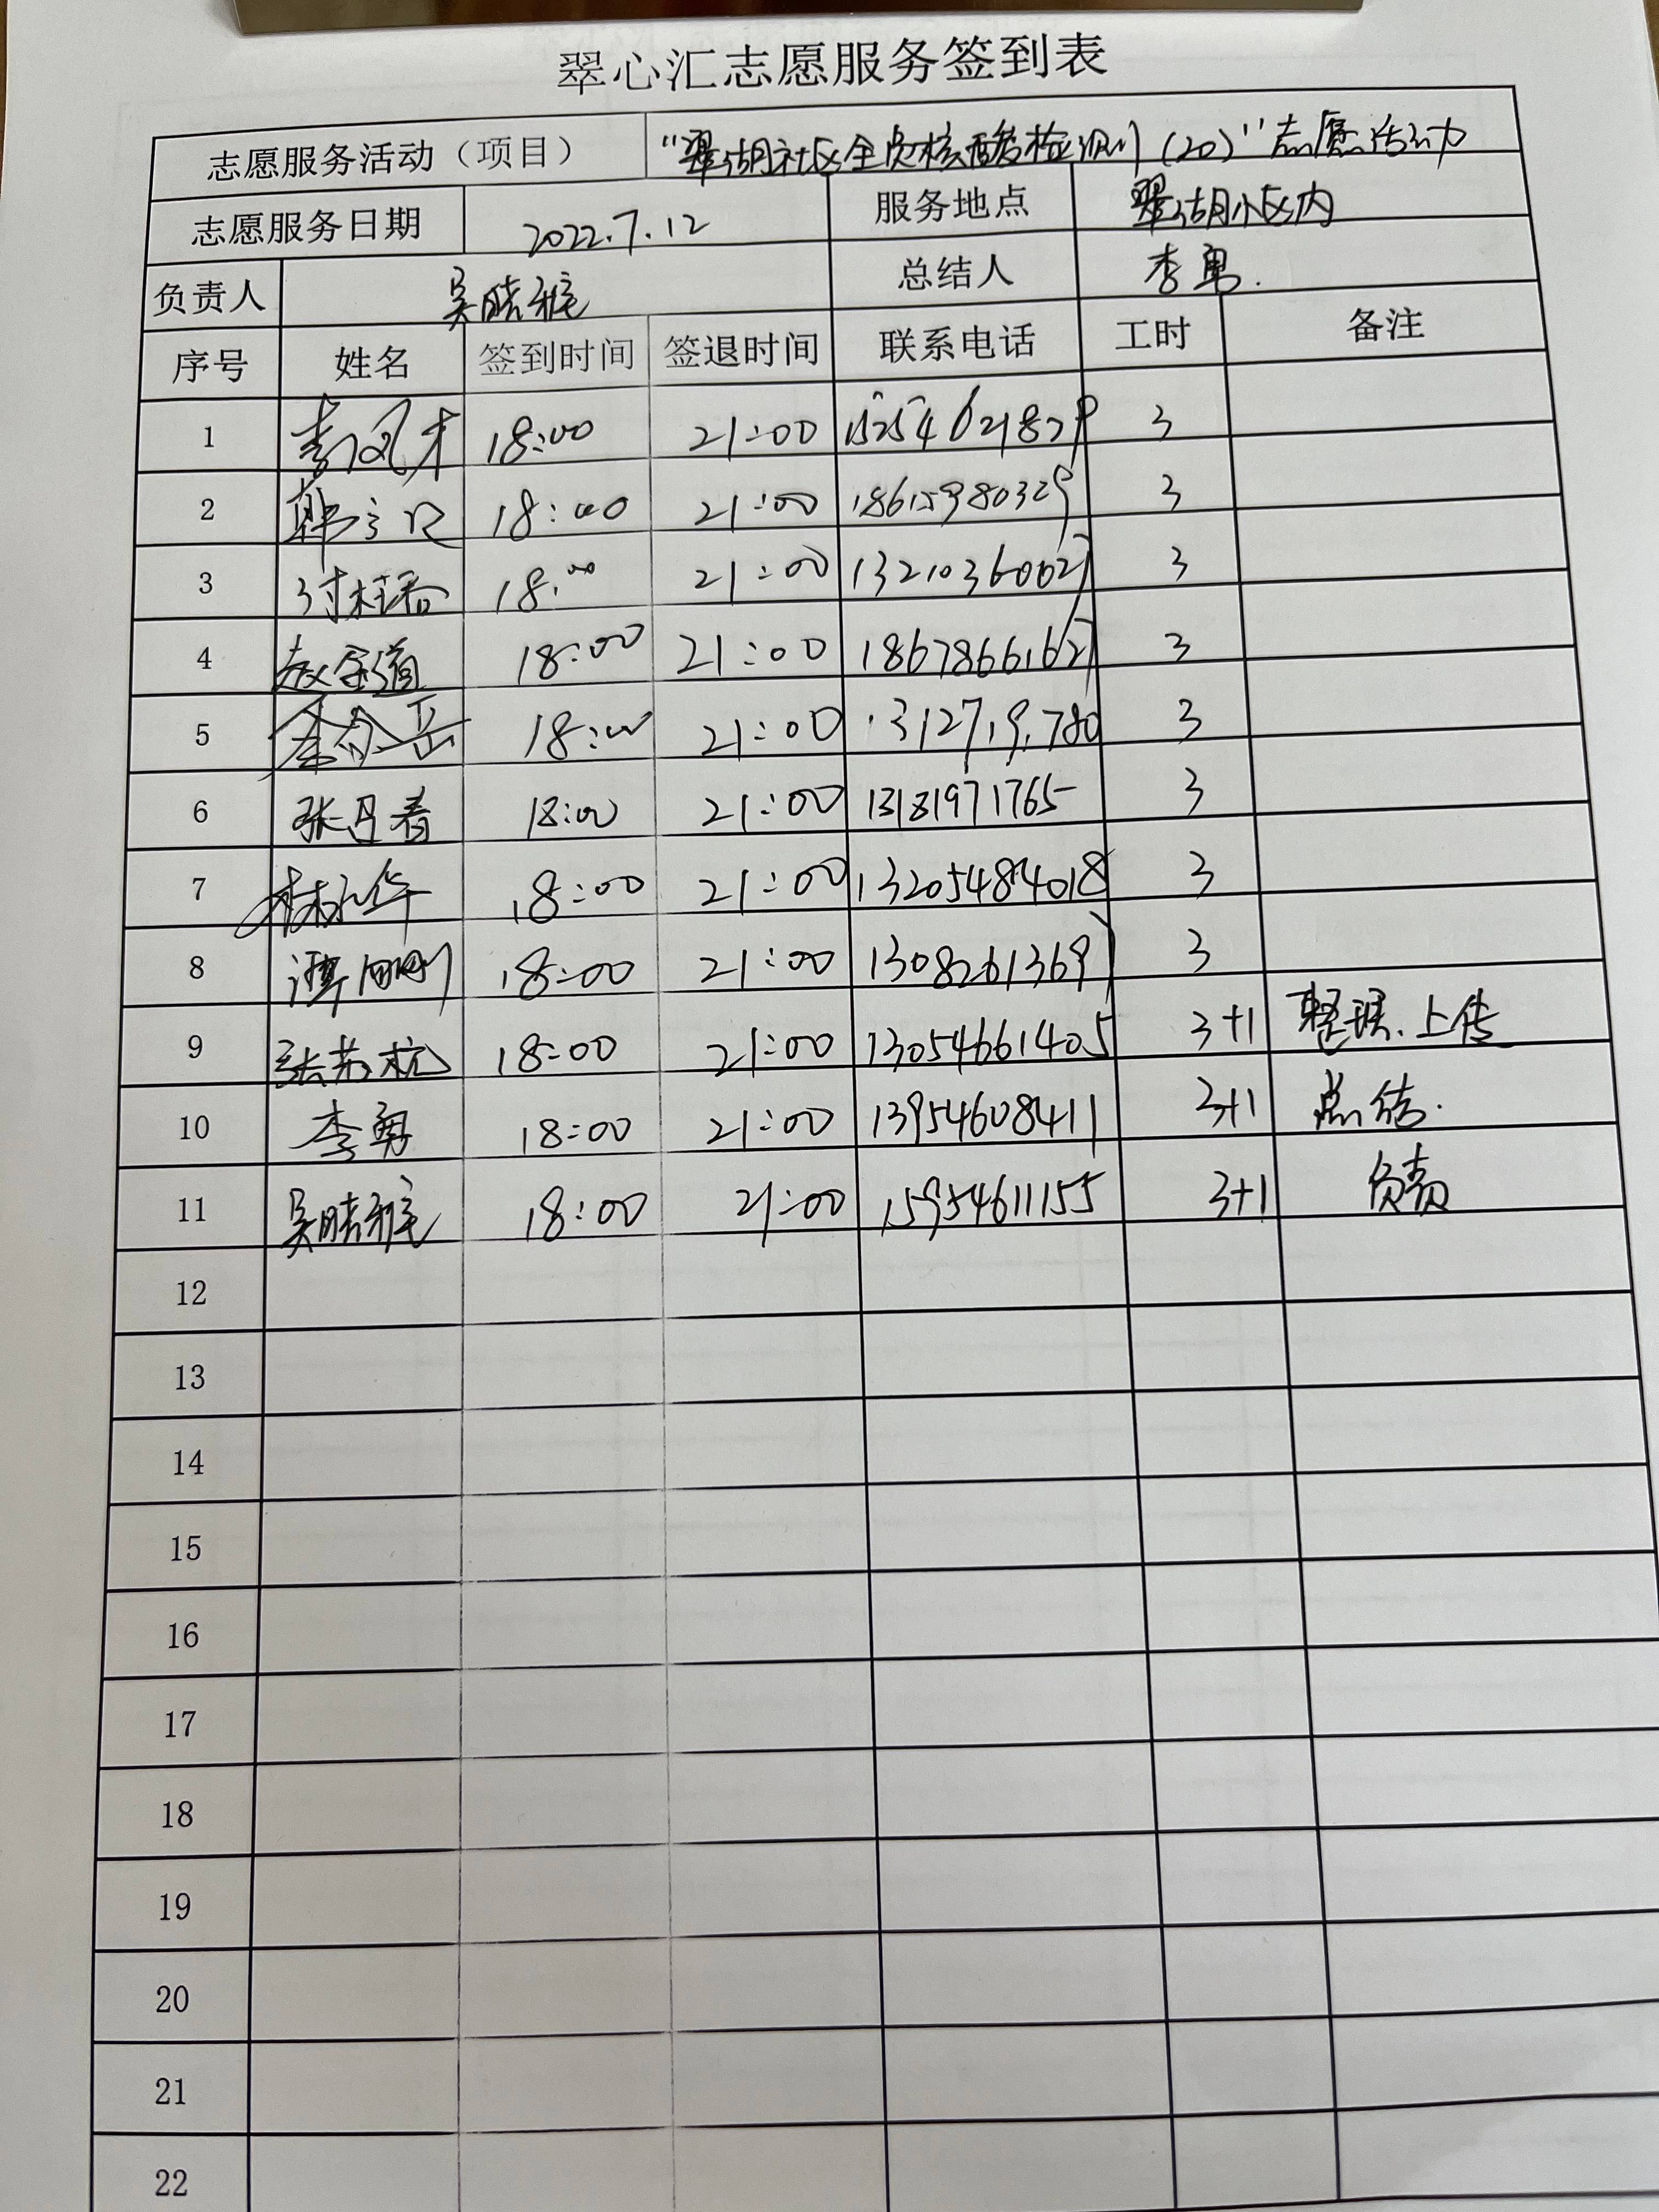 翠心汇志愿服务签到表
志愿服务活动（项目） "翠湖社区全员核酸检测（20）"志愿活动
志愿服务日期 2022.7.12 服务地点 翠湖小区内
负责人 吴晓雅 总结人 李勇.
序号 姓名 签到时间 签退时间 联系电话 工时 备注
1 18:00 21:00 3
2 18:00 21:00 18615980329 3
3 18:00 21:00 13210360627 3
4 赵金道 18:00 21:00 18678661627 3
5 18:00 21:00 3
6 张丹春 18:00 21:00 13181971765 3
7 林永华 18:00 21:00 13205484018 3
8 谭明刚 18:00 21:00 3
9 张苏杭 18:00 21:00 13054661405 3+1 整理.上传
10 李勇 18:00 21:00 13954608411 3+1 总结.
11 吴晓雅 18:00 21:00 15954611155 3+1 负责
12
13
14
15
16
17
18
19
20
21
22